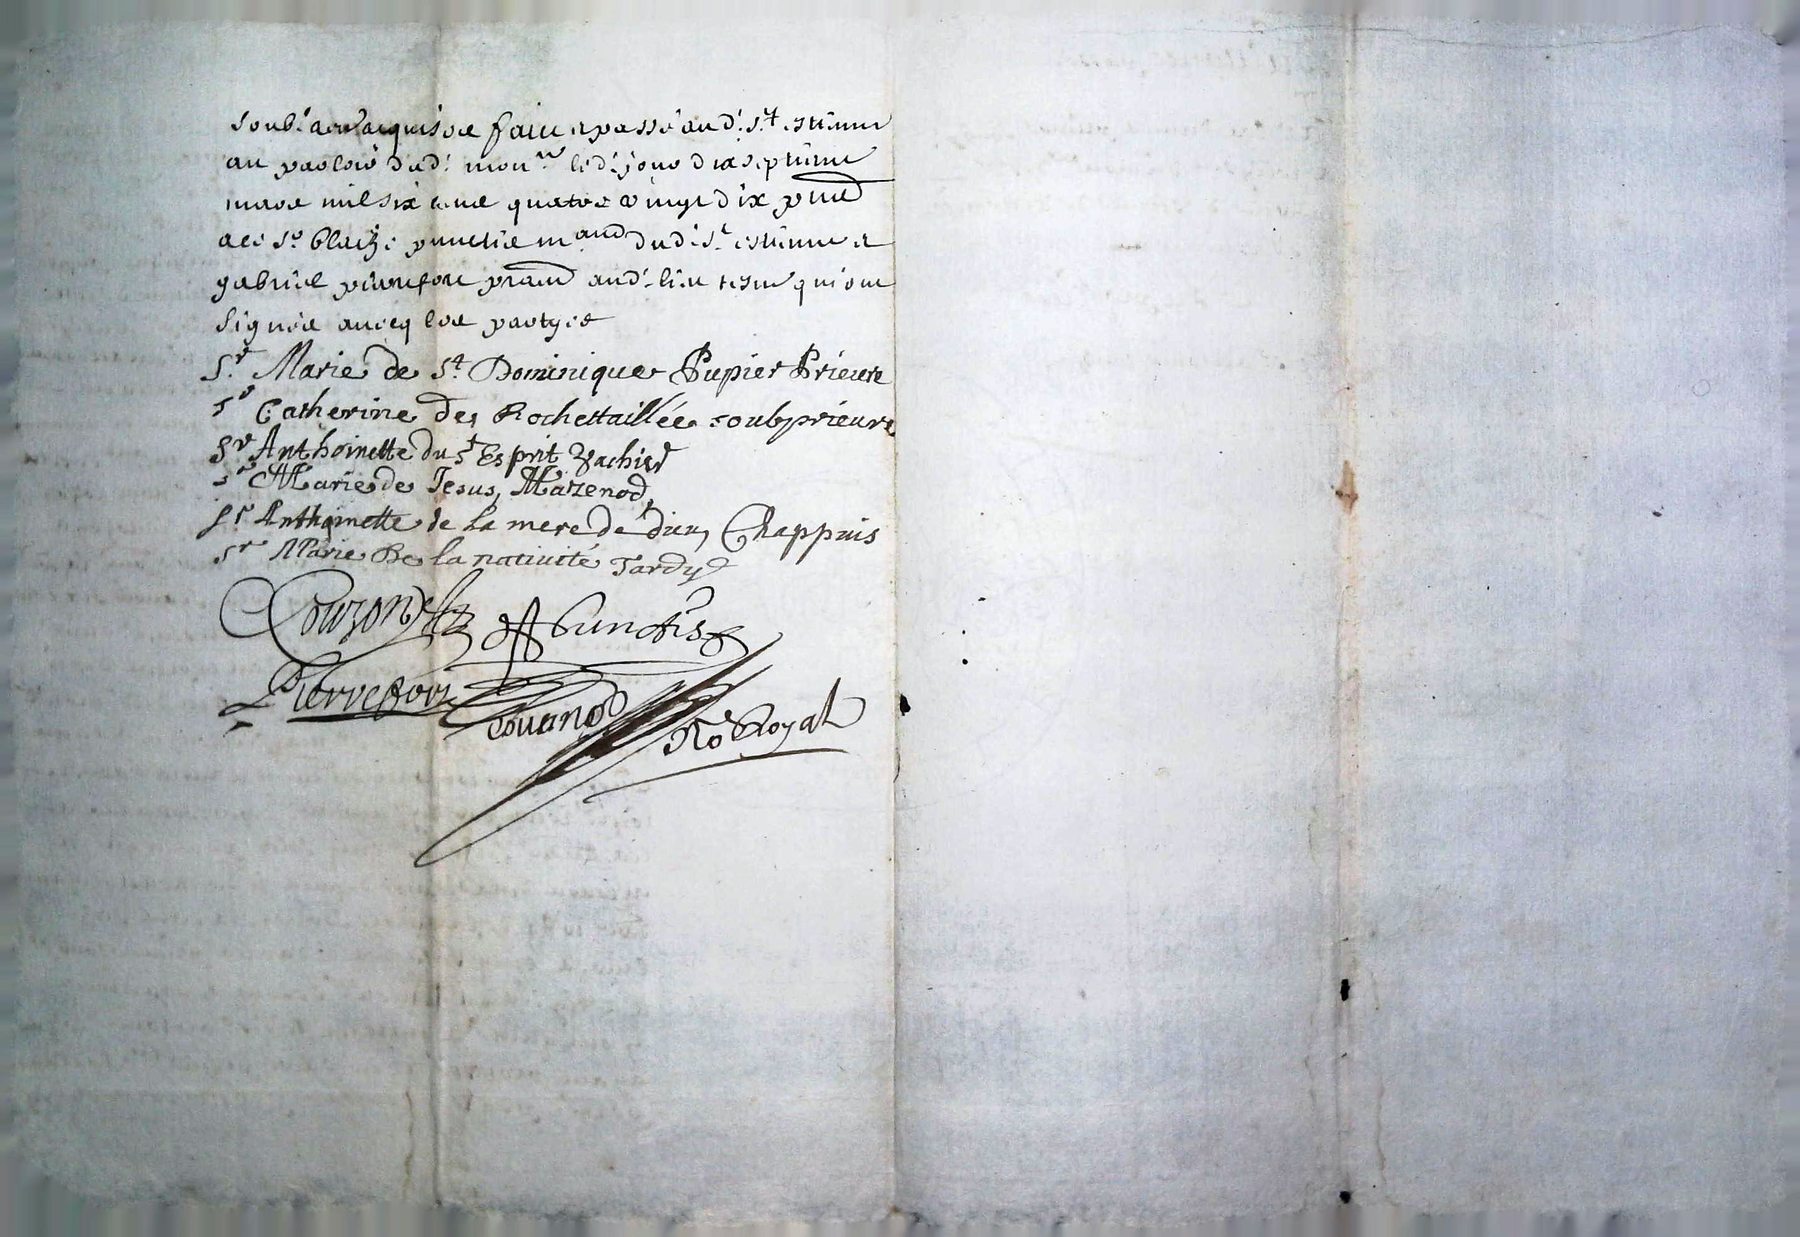 faire et passé aud. St. estienne
au parloir dud. mon.re led. jour dixseptieme
mars mil six cens quatre vingt dix pnts
Sr. Blaize mand dud. St. estienne et
gabriel pierrefort praen aud. lieu tesm qui ont
signée avecq les partyes
Sr. Marie de St. Dominique Pupier Prieure
Sr Catherine des Rochettaillée soubprieure
Sr Anthoinette du St Esprit Vachier
Sr Marie de Jesus, Mazenod
Sr Anthoinette de la mere de dieu, Chappuis
Sr Marie De la nativité Tardy
Pierrefort
Royal